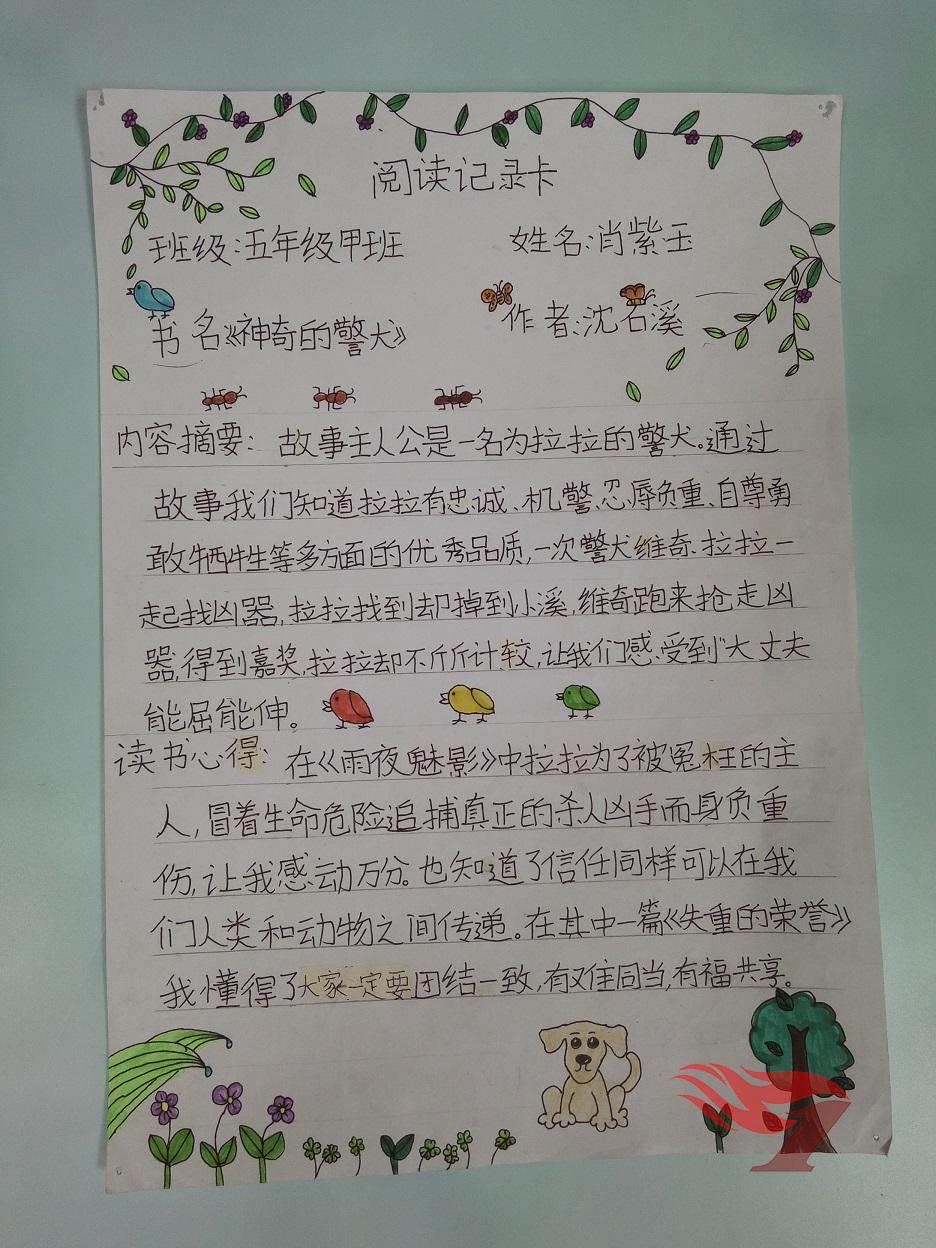 阅读记录卡
班级:五年级甲班 姓名:肖紫玉
书名《神奇的警犬》 作者:沈石溪
内容摘要: 故事主人公是一名为拉拉的警犬。通过
故事我们知道拉拉有忠诚、机警、忍辱负重、自尊勇
敢、牺牲等多方面的优秀品质,一次警犬维奇、拉拉一
起找凶器,拉拉找到却掉到小溪,维奇跑来抢走凶
器,得到嘉奖,拉拉却不斤斤计较,让我们感受到“大丈夫
能屈能伸。
读书心得: 在《雨夜魅影》中拉拉为了被冤枉的主
人,冒着生命危险追捕真正的杀人凶手而身负重
伤,让我感动万分。也知道了信任同样可以在我
们人类和动物之间传递。在其中一篇《失重的荣誉》
我懂得了大家一定要团结一致,有难同当,有福共享。